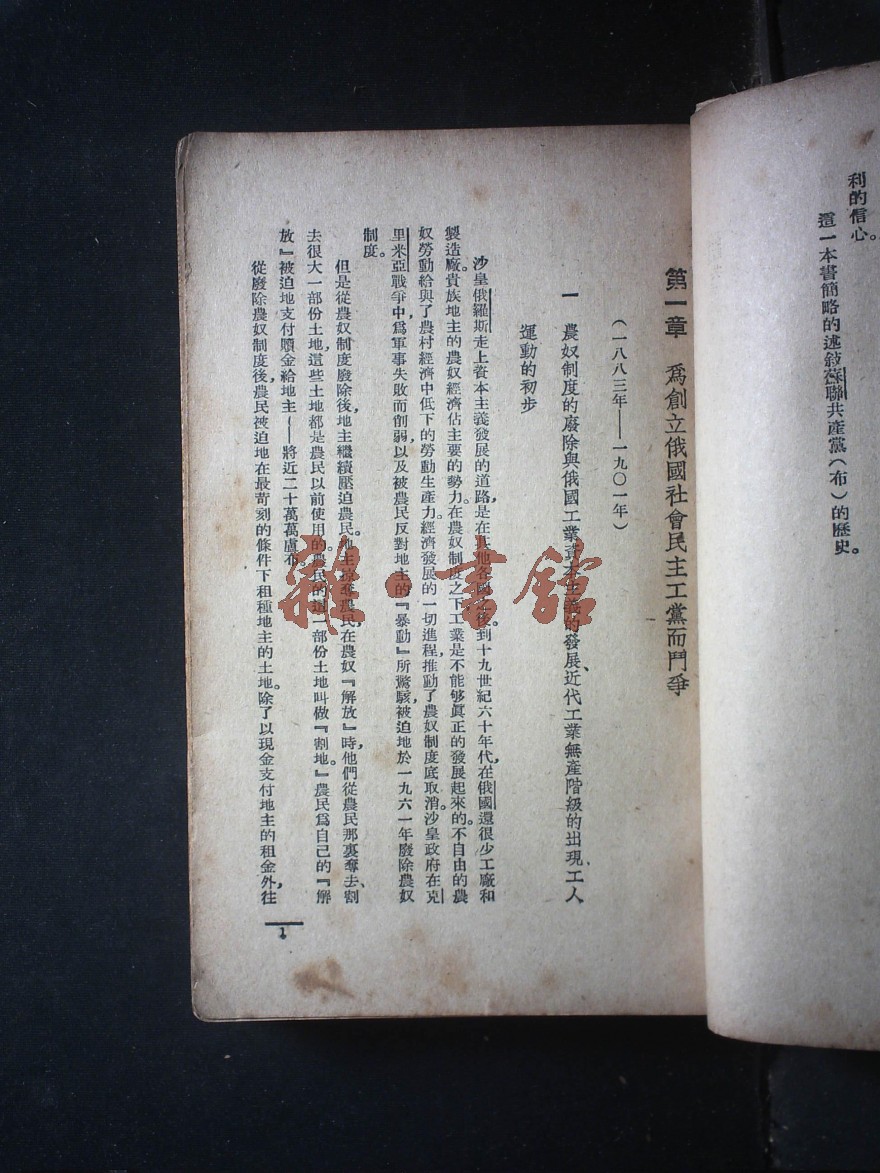 利的信心。
這一本書簡略的述敍蘇聯共產黨(布)的歷史。
第一章 爲創立俄國社會民主工黨而鬥爭
(一八八三年——一九〇一年)
一 農奴制度的廢除與俄國工業資本主義的發展、近代工業無產階級的出現、工人
運動的初步
沙皇俄羅斯走上資本主義發展的道路,是在其他各國之後。到十九世紀六十年代,在俄國還很少工廠和
製造廠。貴族地主的農奴經濟佔主要的勢力。在農奴制度之下工業是不能够眞正的發展起來的。不自由的農
奴勞動給與了農村經濟中低下的勞動生產力。經濟發展的一切進程,推動了農奴制度底取消。沙皇政府在克
里米亞戰爭中,爲軍事失敗而削弱,以及被農民反對地主的『暴動』所驚駭,被迫地於一九六一年廢除農奴
制度。
但是從農奴制度廢除後,地主繼續壓迫農民。地主掠奪農民,在農奴『解放』時,他們從農民那裏奪去、割
去很大一部份土地,這些土地都是農民以前使用的。農民的這一部份土地叫做『割地』。農民爲自己的『解
放』被迫地支付贖金給地主——將近二十萬萬盧布。
從廢除農奴制度後,農民被迫地在最苛刻的條件下租種地主的土地。除了以現金支付地主的租金外,往
1
雜·書館